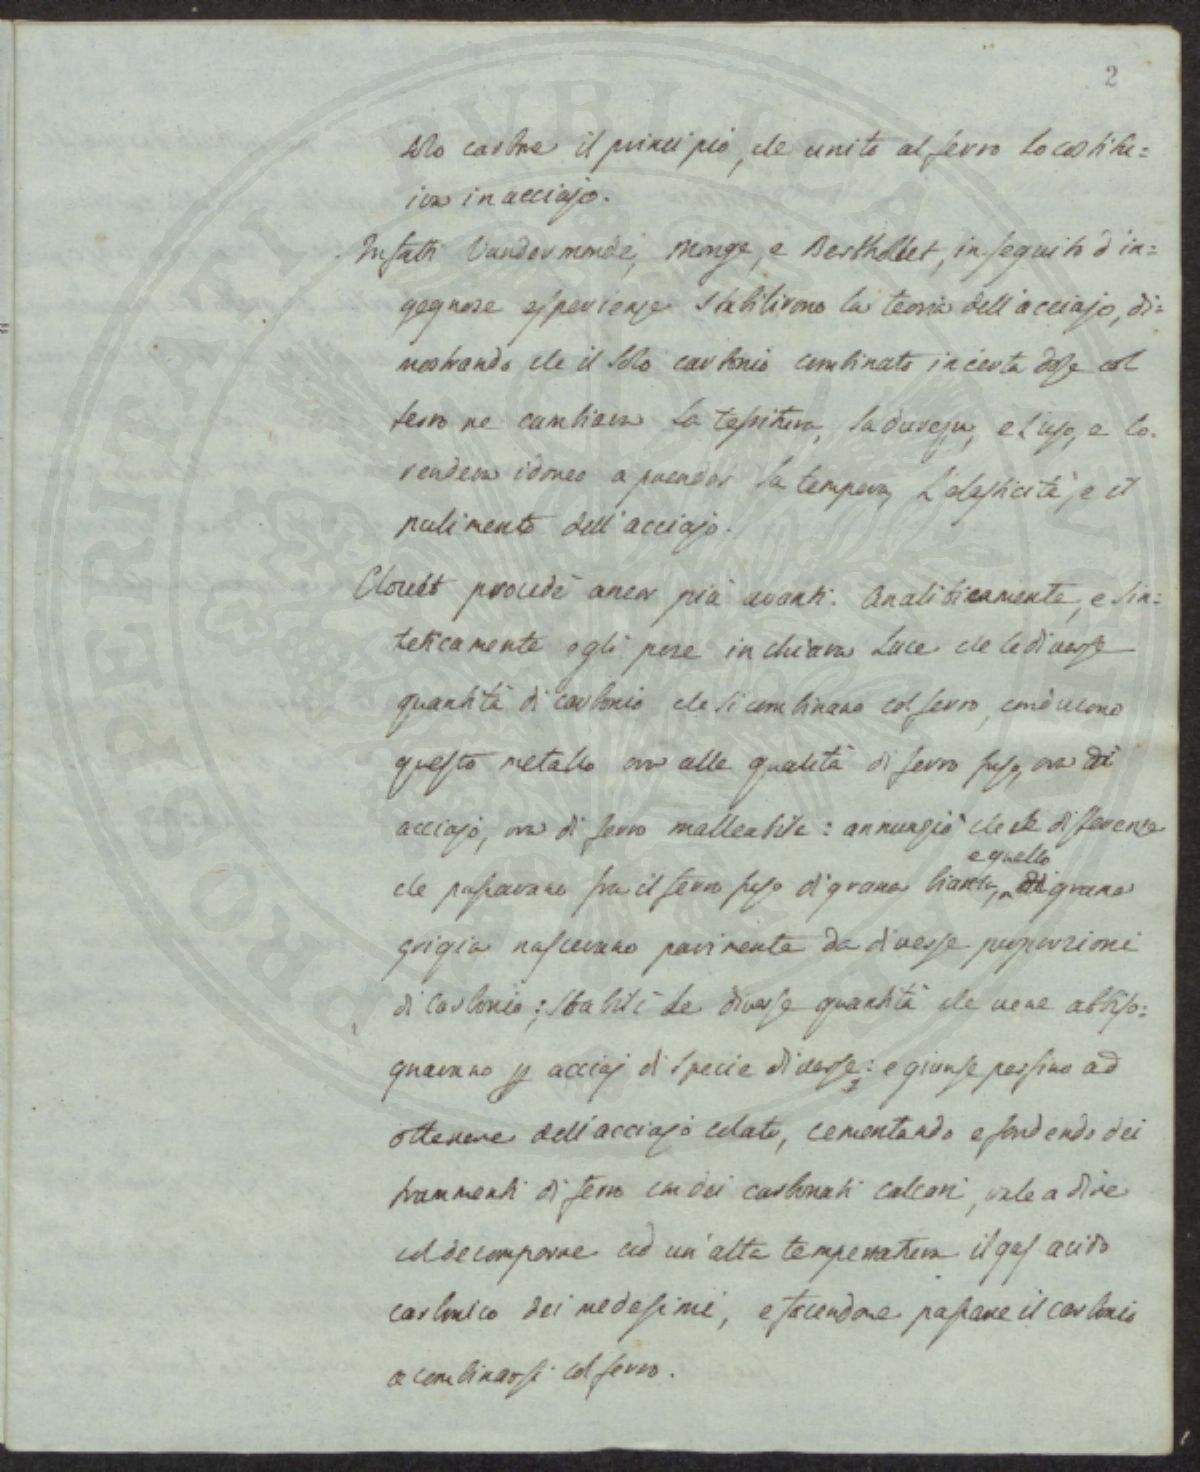 2
solo carbone il principio, che unito al ferro lo costitui=
iva in acciajo.
Infatti Vandermonde, Monge, e Berthollet, in seguito d'in=
gegnose esperienze stabilirono la teoria dell'acciajo, di=
mostrando che il solo carbonio combinato in certa dose col
ferro ne cambiava la tessitura, la durezza, e l'uso, e lo
rendeva idoneo a prender la tempera, l'elasticità, e il
pulimento dell'acciajo.
Clouet procedè ancor più avanti. Analiticamente, e sin=
teticamente egli pose in chiara luce che le diverse
quantità di carbonio che si combinano col ferro, conducono
questo metallo ora alle qualità di ferro fuso, ora di
acciajo, ora di ferro malleabile: annunziò che le differenze
che passavano fra il ferro fuso di grana bianca, e quello di grana
grigia nascevano parimente da diverse proporzioni
di carbonio; stabilì le diverse quantità che ve ne abbiso=
gnavano p acciaj di specie diverse: e giunse persino ad
ottenere dell'acciajo colato, cementando e fondendo dei
frammenti di ferro con dei carbonati calcari, vale a dire
col decomporre ad un'alta temperatura il gas acido
carbonico dei medesimi, e facendone passare il carbonio
a combinarsi col ferro.
PROSPERITATI PVBLICAE